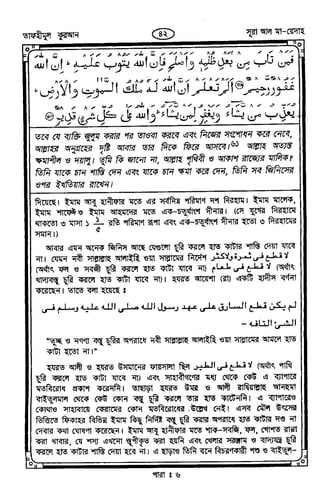 তাফহীমুল কুরআন ৪২ সূরা আল মা-য়েদাহ
فمن تاب من بعد ظلمه واصلح فان الله يتوب عليه ان الله
غفور رحيم الم تعلم ان الله له ملك السموت والارض
يعذب من يشاء ويغفر لمن يشاء والله على كل شيء قدير
তবে যে ব্যক্তি জুলুম করার পর তাওবা করবে এবং নিজের সংশোধন করে নেবে,
আল্লাহর অনুগ্রহের দৃষ্টি আবার তার দিকে ফিরে আসবে। আল্লাহ অত্যন্ত
ক্ষমাশীল ও দয়ালু। তুমি কি জানো না, আল্লাহ পৃথিবী ও আকাশ রাজ্যের মালিক?
তিনি যাকে চান শাস্তি দেন এবং যাকে চান ক্ষমা করে দেন, তিনি সব জিনিসের
ওপর ইখতিয়ার রাখেন।
দিয়েছে। ইমাম আবু হানীফার মতে এর সর্বনিম্ন পরিমাণ দশ দিরহাম। ইমাম মালেক,
ইমাম শাফেঈ ও ইমাম আহমদের মতে এক-চতুর্থাংশ দীনার। (সে যুগের দিরহামে
থাকতো ৩ মাসা ১ ১/৫ রতি পরিমাণ রূপা এবং এক-চতুর্থাংশ দীনার হতো ৩ দিরহামের
সমান।)
আবার এমন অনেক জিনিস আছে যেগুলো চুরি করলে হাত কাটার শাস্তি দেয়া যাবে
না। যেমন নবী সাল্লাল্লাহু আলাইহি ওয়া সাল্লামের নির্দেশ لا قطع فى ثمرة ولا كثر
(অর্থাৎ ফল ও সবজী চুরি করলে হাত কাটা যাবে না) لا قطع فى طعام (অর্থাৎ
খাদ্যবস্তু চুরি করলে হাত কাটা যাবে না)। হযরত আয়েশা (রা) একটি হাদীস বর্ণনা
করেছেন। তাতে বলা হয়েছে ঃ
لم يكن قطع السارق على عهد رسول الله صلى الله عليه وسلم فى
الشئ التافه -
"তুচ্ছ ও নগণ্য বস্তু চুরির অপরাধে নবী সাল্লাল্লাহু আলাইহি ওয়া সাল্লামের আমলে হাত
কাটা হতো না।"
হযরত আলী ও হযরত উসমানের ফায়সালা ছিল لا قطع فى الطير (অর্থাৎ পাখি
চুরি করলে হাত কাটা যাবে না) এবং সাহাবীগণের মধ্য থেকে কেউ এ ব্যাপারে
মতবিরোধ প্রকাশ করেননি। তাছাড়া হযরত উমর ও আলী রাদিয়াল্লাহু আনহুমা
বাইতুলমাল থেকে কেউ কোন বস্তু চুরি করলে তার হাত কাটেননি। এ ব্যাপারেও
কোথাও সাহাবায়ে কেরামের কোন মতবিরোধের উল্লেখ নেই। এসব মৌল উৎসের
ভিত্তিতে ফিকাহর বিভিন্ন ইমাম কিছু নির্দিষ্ট বস্তু চুরি করার অপরাধে হাত কাটার দণ্ড না
দেবার কথা ঘোষণা করেছেন। ইমাম আবু হানীফার মতে শাক-সবজি, ফল, গোশত রান্না
করা খাবার, যে শস্য এখনো স্তূপীকৃত করা হয়নি এবং খেলার সরঞ্জাম ও বাদ্যযন্ত্র চুরি
করলে হাত কাটার শাস্তি দেয়া হবে না। এ ছাড়াও তিনি বনে বিচরণকারী পশু ও বাইতুল-
পারা ঃ ৬